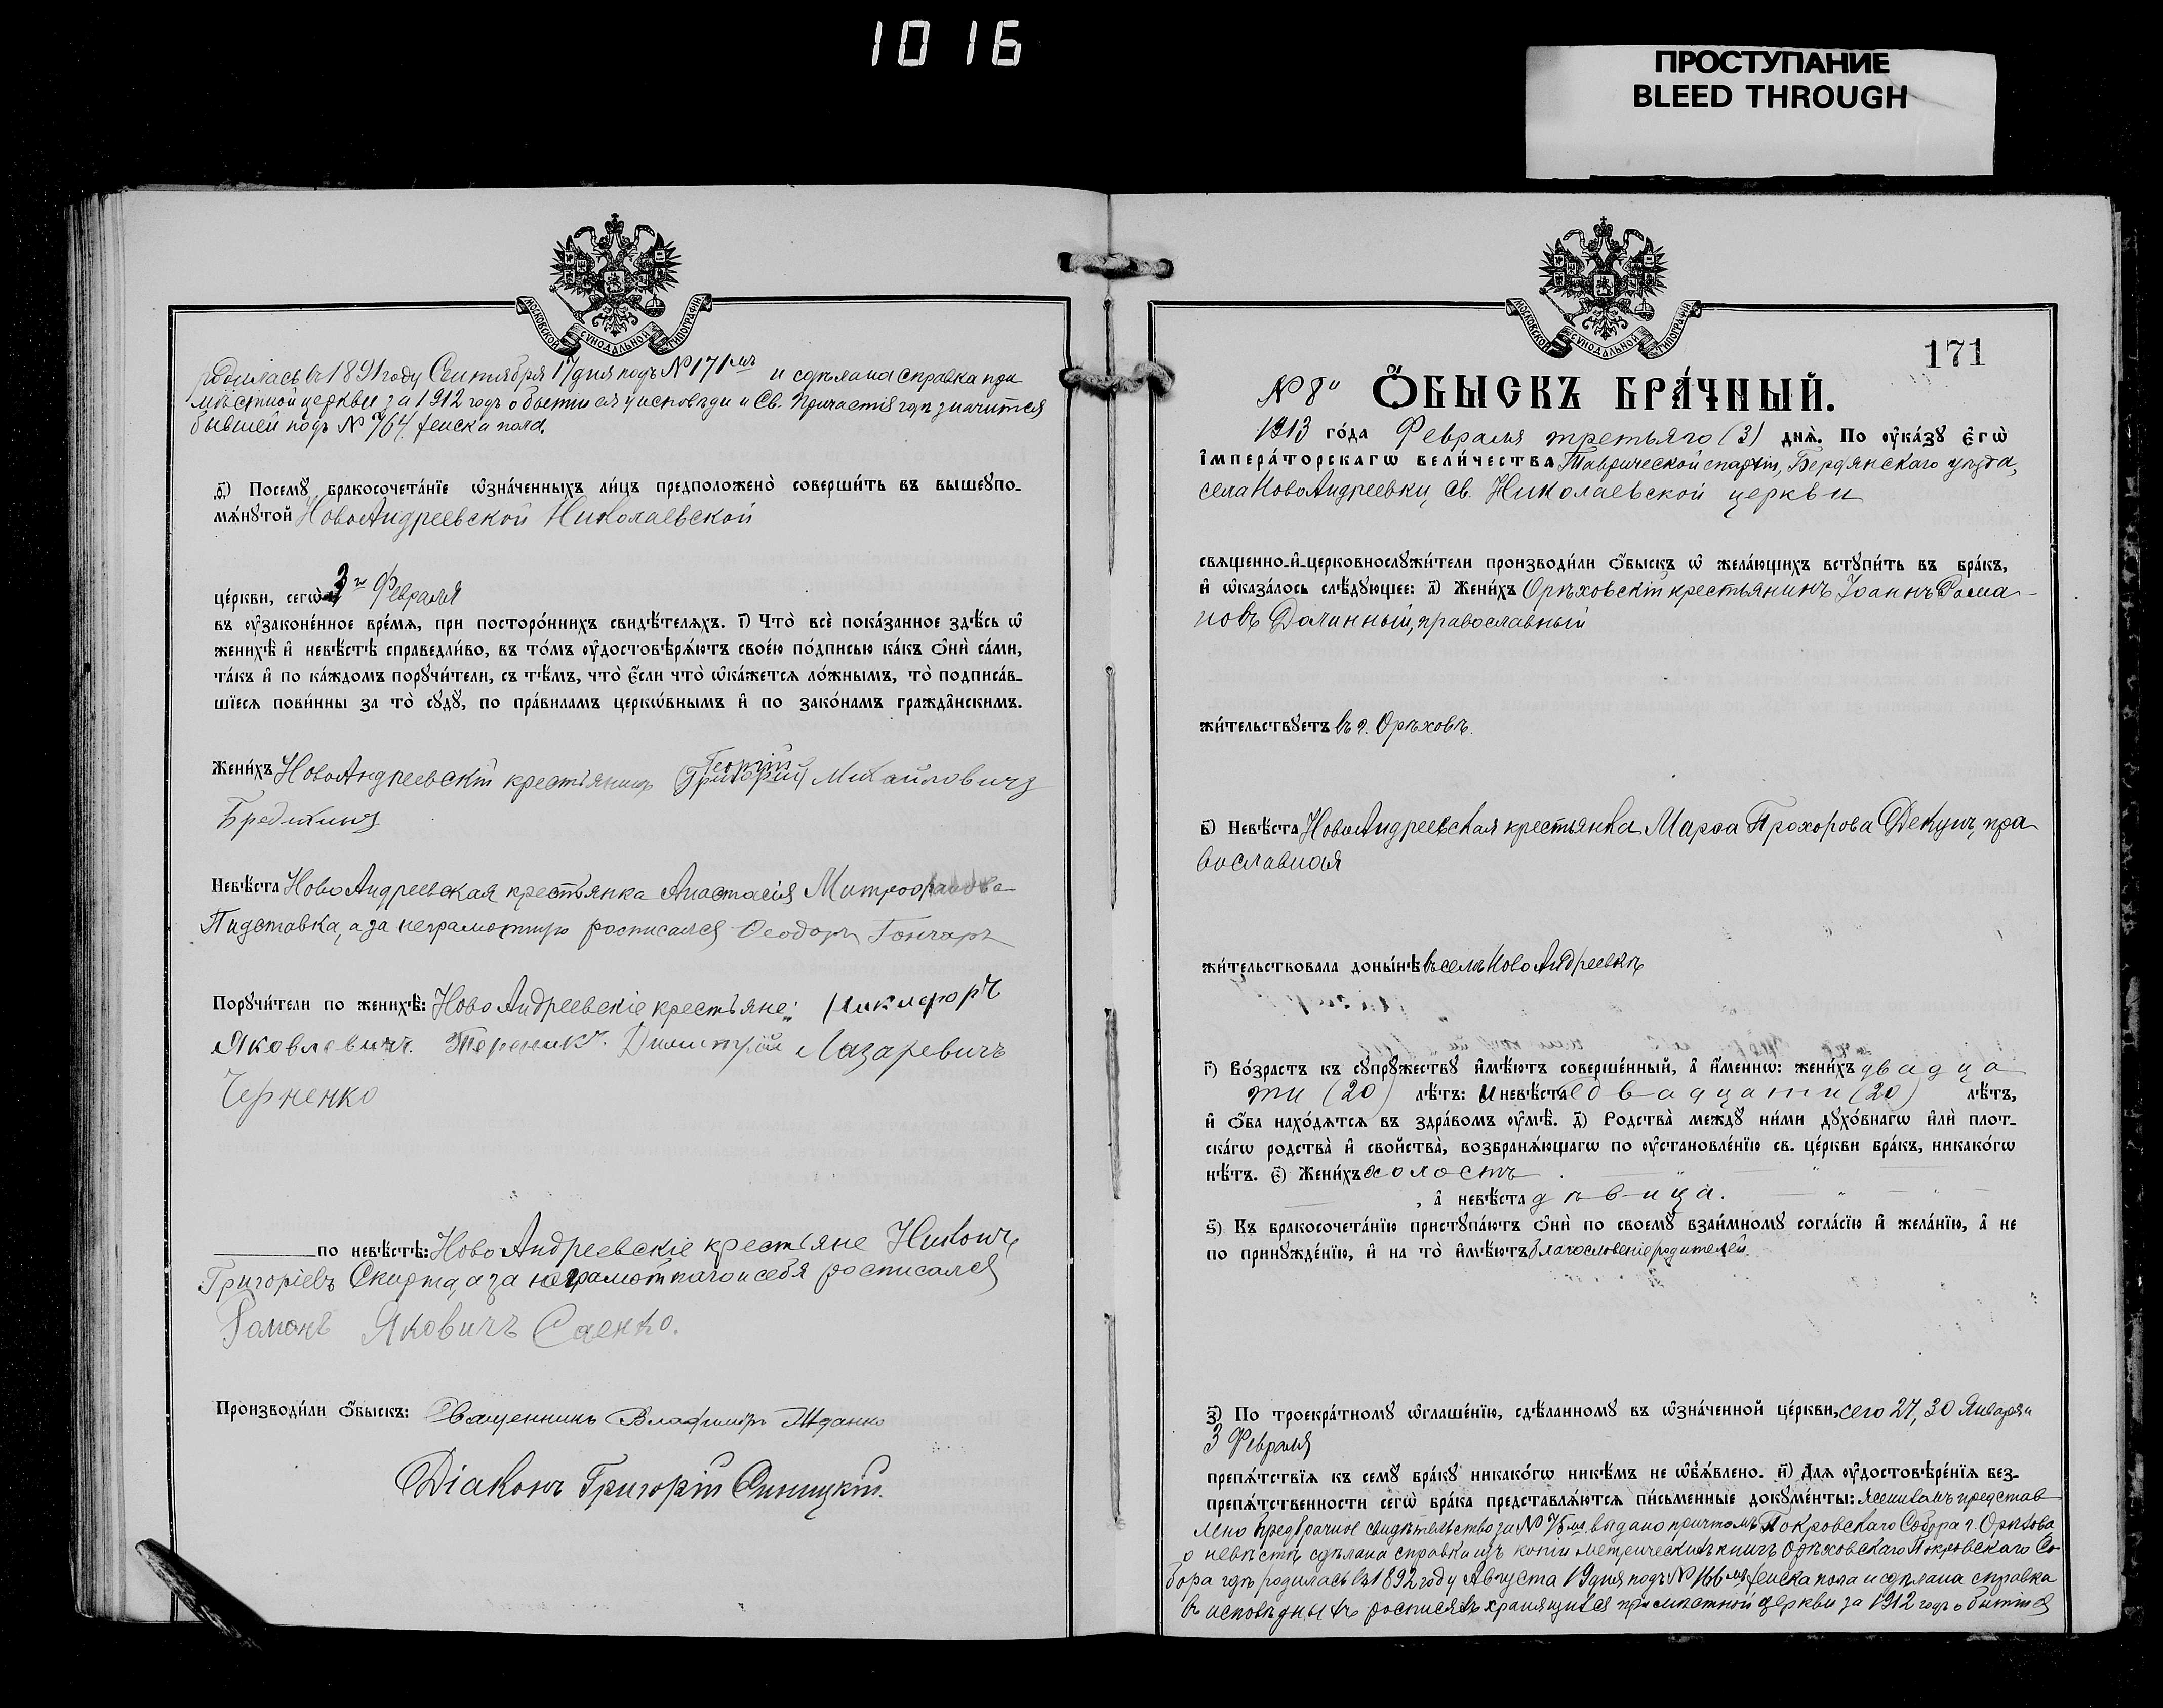 1016
ПРОСТУПАНИЕ
BLEED THROUGH
МОСКОВСКОЙ СѴНОДАЛЬНОЙ ТИПОГРАФІИ
родилась въ 1891 году Сентября 17 дня подъ № 171мъ и сдѣлана справка при
мѣстной церкви за 1912 годъ о бытіи ея у исповѣди и Св. Причастія гдѣ значится
бывшей подъ № 764 женска пола.
ѳ҃) Посемꙋ, бракосочета́нїе ѡ҆зна́ченныхъ ли́цъ предположено̀ соверши́ть въ вышеꙋпо-
мѧ́нꙋтой НовоАндреевской Николаевской
це́ркви, сегѡ̀ 3го Февраля
въ ᲂу҆законе́нное вре́мѧ, при посторо́ннихъ свидѣ́телѧхъ. і҃) Что̀ всѐ пока́занное здѣ́сь ѡ҆
женихѣ̀ и҆ невѣ́стѣ справедли́во, въ то́мъ ᲂу҆достовѣрѧ́ютъ свое́ю по́дписью ка́къ ѻ҆нѝ са́ми,
та́къ и҆ по ка́ждомъ порꙋчи́тели, съ тѣ́мъ, что̀ є҆́сли что̀ ѡ҆ка́жетсѧ ло́жнымъ, то̀ подписа́в-
шїесѧ пови́нны за то̀ сꙋдꙋ̀, по пра́виламъ церкѡ́внымъ и҆ по зако́намъ гражда̂нскимъ.
Георгій
Жени́хъ НовоАндреевскій крестьянинъ (Григорій) Михайловичъ
Бредихинъ
Невѣ́ста НовоАндреевская крестьянка Анастасія Митрофанова
Пидставка, а за неграмотную росписался Ѳеодоръ Гончаръ
Порꙋчи́тели по женихѣ̀: НовоАндреевскіе крестьяне: Никифоръ
Яковлевичъ Димитрій Лазаревичъ
Черненко
по невѣ́стѣ: НовоАндреевскіе крестьяне Никонъ
Григоріевъ Скирта, а за неграмотнаго и себя росписался
Романъ Яковичъ Саенко.
Производи́ли ѻ҆́быскъ: Священникъ Владиміръ Жданко
Діаконъ Григорій Синицкій.
МОСКОВСКОЙ СѴНОДАЛЬНОЙ ТИПОГРАФІИ
171
№ 8й Ѻ҆́БЫСКЪ БРА́ЧНЫЙ.
1913 го́да Февраля третьяго (3) днѧ̀. По ᲂу҆ка́зꙋ є҆гѡ̀
і҆мпера́торскагѡ вели́чества Таврической епархіи, Бердянскаго уѣзда,
села НовоАндреевки, Св. Николаевской церкви
свѧщенно-и҆-церковнослꙋжи́тели производи́ли ѻ҆́быскъ ѡ҆ жела́ющихъ встꙋпи́ть въ бра́къ,
и҆ ѡ҆каза́лось слѣ́дꙋющее: а҃) Жени́хъ Орѣховскій крестьянинъ Іоаннъ Рома-
новъ Долинный, православный
жи́тельствꙋетъ въ г. Орѣховѣ.
в҃) Невѣ́ста НовоАндреевская крестьянка Марѳа Прохорова Декунъ, пра
вославная
жи́тельствовала доны́нѣ въ селѣ НовоАндреевкѣ
г҃) Во́зрастъ къ сꙋпрꙋ́жествꙋ и҆мѣ́ютъ соверше́нный, а҆ и҆́меннѡ: жени́хъ двадца
ти (20) лѣ́тъ: и невѣ́ста двадцати (20) лѣ́тъ,
и҆ ѻ҆́ба нахо́дѧтсѧ въ здра́вомъ ᲂу҆мѣ̀. д҃) Родства̀ междꙋ̀ ни́ми дꙋхо́внагѡ и҆лѝ плот-
ска́гѡ родства̀ и҆ свойства̀, возбранѧ́ющагѡ по ᲂу҆становле́нїю св. це́ркви бра́къ, никако́гѡ
нѣ́тъ. є҃) Жени́хъ холостъ
, а҆ невѣ́ста дѣвица.
ѕ҃) Къ бракосочета́нїю пристꙋпа́ютъ ѻ҆нѝ по своемꙋ̀ взаи́мномꙋ согла́сїю и҆ жела́нїю, а҆ не
по принꙋжде́нїю, и҆ на то̀ и҆мѣ́ютъ благословеніе родителей.
з҃) По троекра́тномꙋ ѡ҆глаше́нїю, сдѣ́ланномꙋ въ ѡ҆зна́ченной це́ркви, сего 27, 30 Января и
3 Февраля
препѧ́тствїѧ къ семꙋ̀ бра́кꙋ никако́гѡ никѣ́мъ не ѡ҆б̾ѧ́влено. и҃) Длѧ ᲂу҆достовѣре́нїѧ без-
препѧ́тственности сегѡ̀ бра́ка представлѧ́ютсѧ пи́сьменные докꙋме́нты: женихомъ представ
лено предбрачное свидѣтельство за № 75мъ выдано причтомъ Покровскаго Собора г. Орѣхова
о невѣстѣ сдѣлана справка изъ копіи метрическихъ книгъ Орѣховскаго Покровскаго Со
бора гдѣ родилась въ 1892 году Августа 19 дня подъ № 166мъ женска пола и сдѣлана справка
въ исповѣдныхъ росписяхъ хранящихся при мѣстной церкви за 1912 годъ о бытіи ея